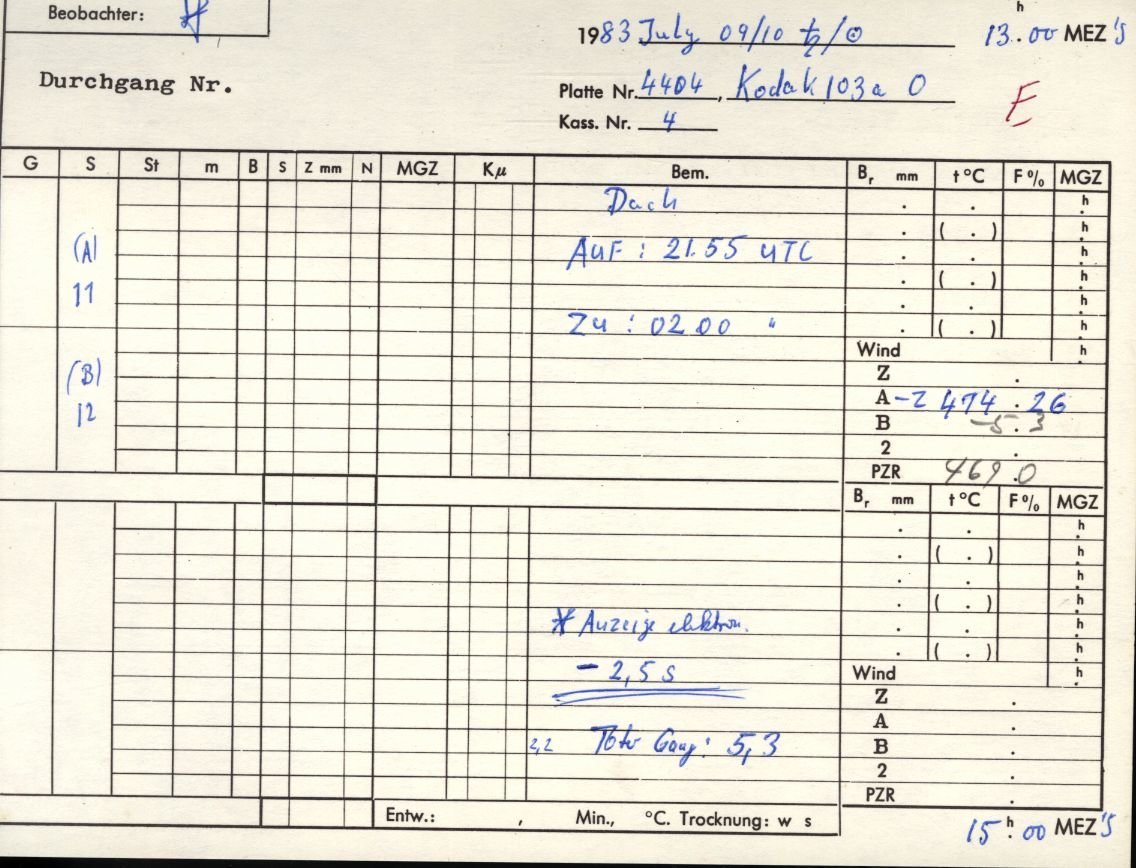 Beobachter:
1983 July 09/10 ♄/☉ 13 h 00 MEZ'S
Durchgang Nr.
Platte Nr. 4404, Kodak 103a O
F
Kass. Nr. 4
G S St m B S Z mm N MGZ Kμ Bem. Br mm t °C F% MGZ
Dach . . h
. ( . ) h
(A) Auf : 21.55 UTC . . h
11 . ( . ) h
. . h
Zu : 02 00 " . ( . ) h
Wind h
(B) Z .
A -2 474 . 26
12 B -5.3
2 .
PZR 469.0
Br mm t °C F% MGZ
. . h
. ( . ) h
. . h
. ( . ) h
* Anzeige elektron. . . h
. ( . ) h
- 2,5 s Wind h
Z .
A .
2,2 Toter Gang: 5,3 B .
2 .
PZR .
Entw.: , Min., °C. Trocknung: w s
15 h 00 MEZ'S